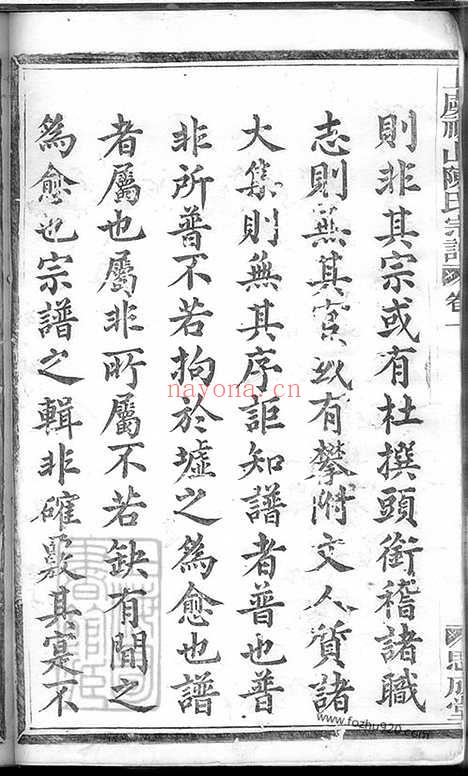 則非其宗或有杜撰頭銜稽諸職
志則無其實或有攀附文人質諸
大集則無其序詎知譜者普也普
非所普不若拘於墟之為愈也譜
者屬也屬非所屬不若缺有間之
為愈也宗譜之輯非確覈其寔不
山陳氏宗譜
卷一
思成堂
nayona.cn
www.fozhu920.com